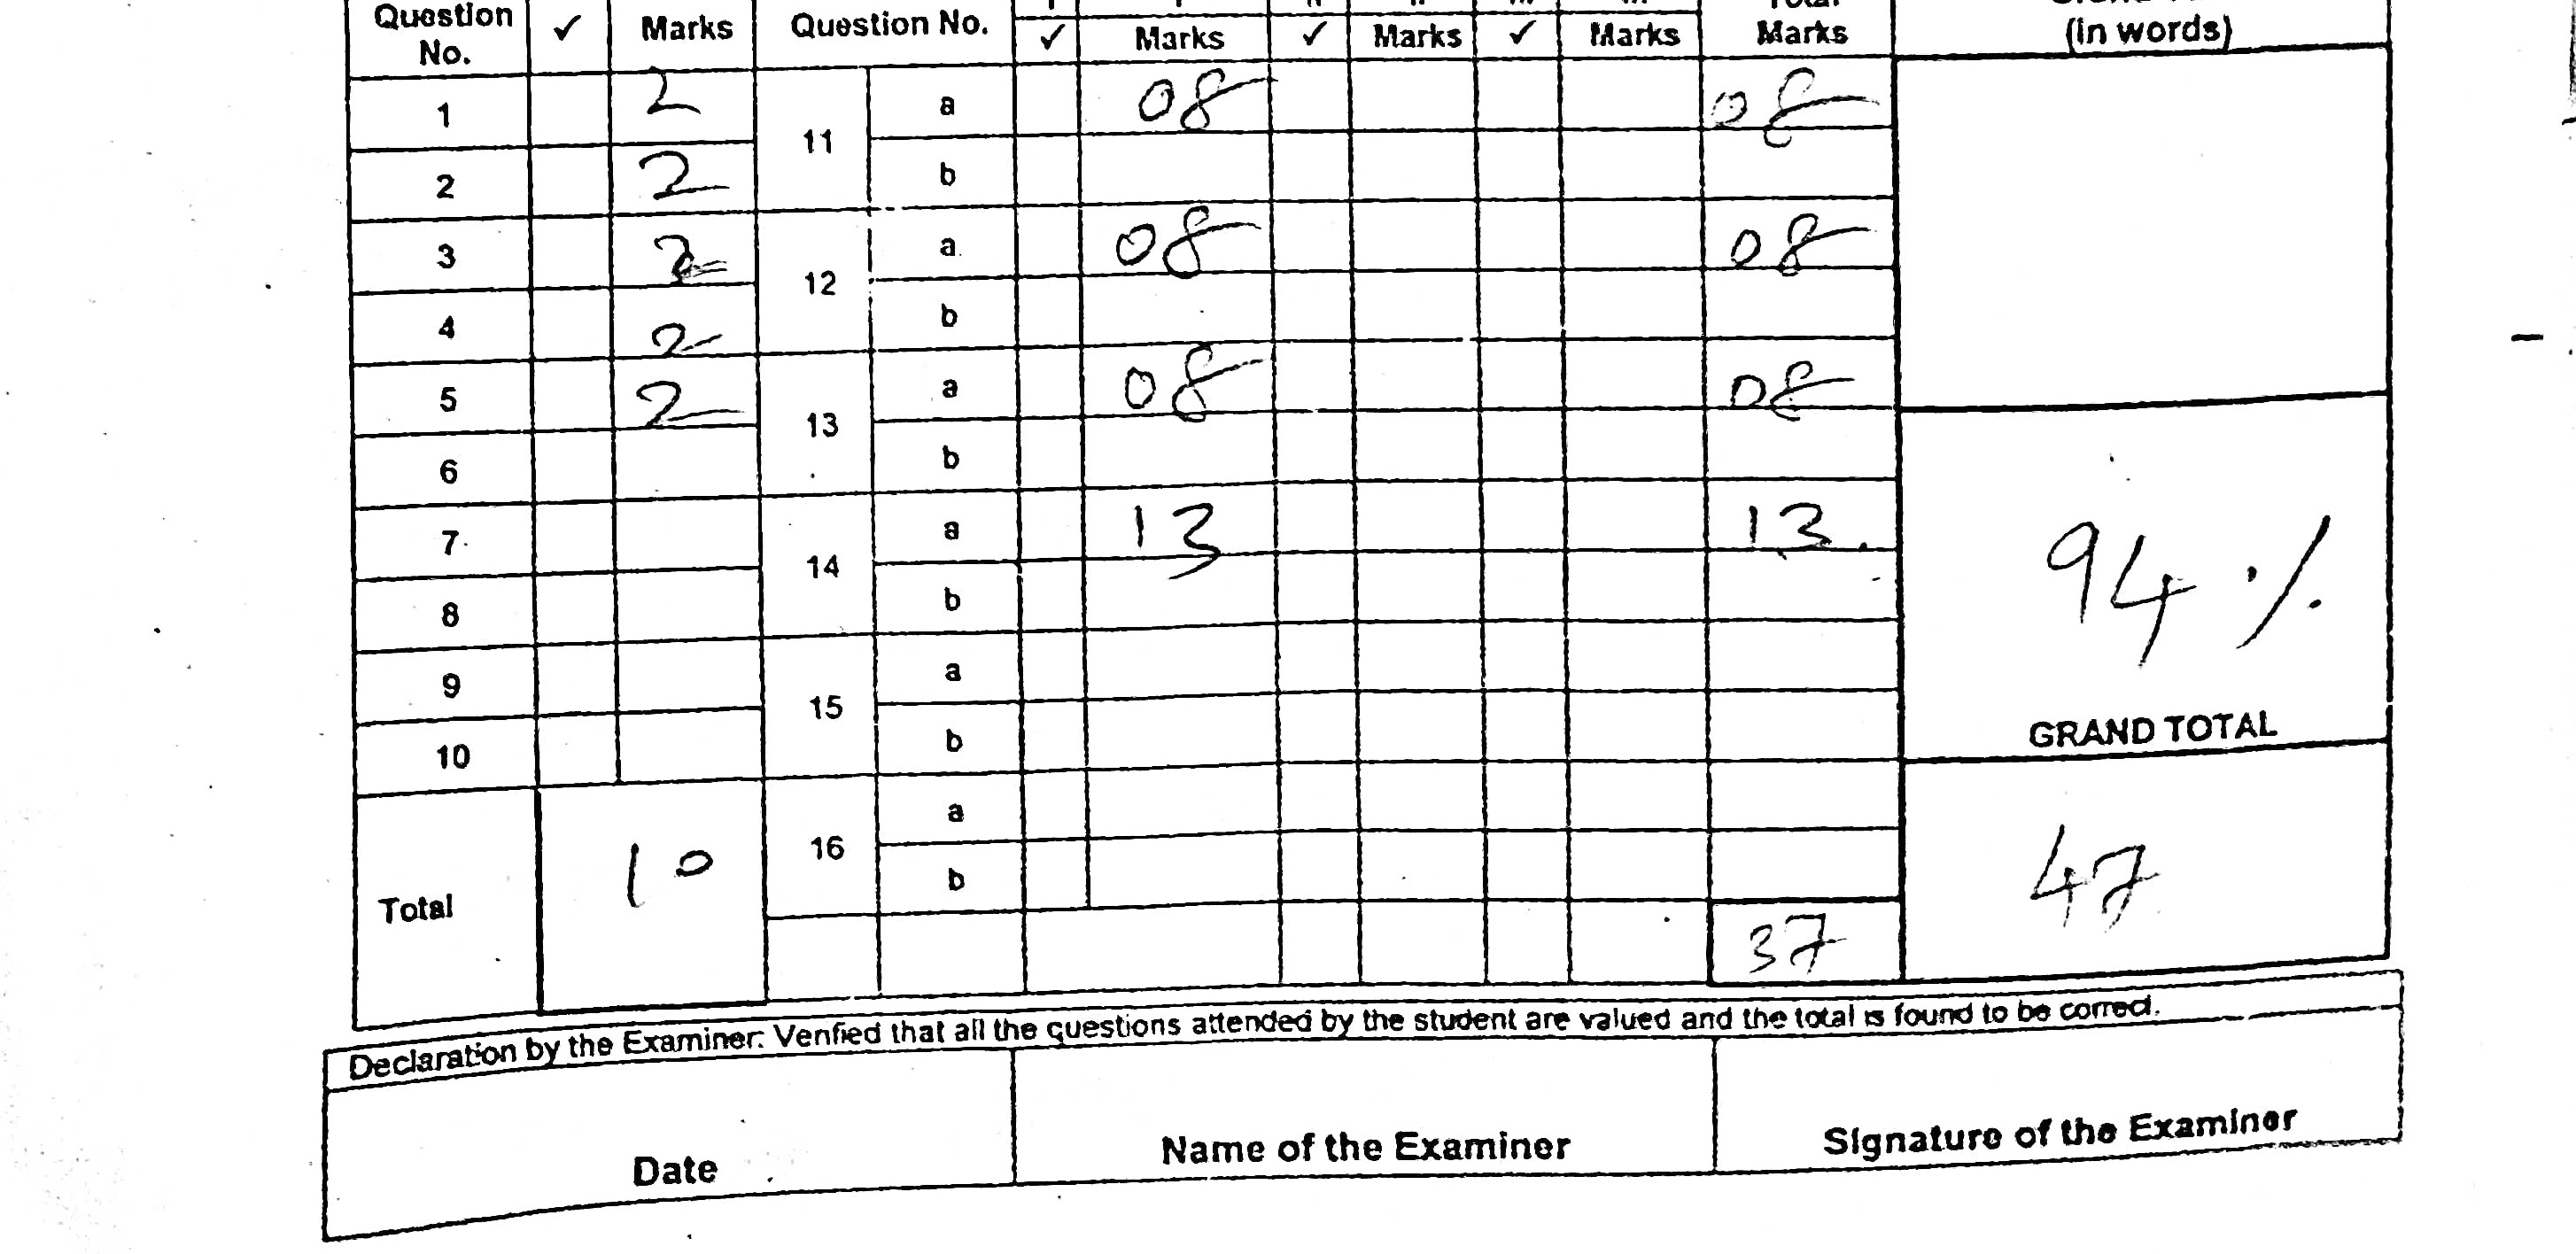 Question No. ✓ Marks Question No. ✓ Marks ✓ Marks ✓ Marks Marks (in words)
1 2 11 a 08 08
2 2 b
3 2 12 a 08 08
4 2 b
5 2 13 a 08 08
6 b
7 14 a 13 13
8 b
94 %
9 15 a
10 b
GRAND TOTAL
16 a
Total 10 b
47
37
Declaration by the Examiner: Verified that all the questions attended by the student are valued and the total is found to be correct.
Date Name of the Examiner Signature of the Examiner